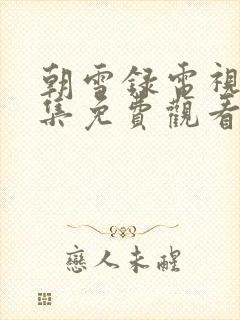 朝雪録電視
集免費觀看
戀人未醒